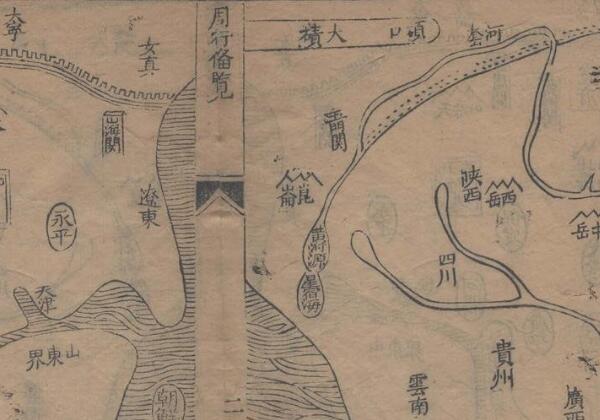 大寧
女真
山海関
遼東
永平
天津
山東界
朝鮮
周行備覧
二
大積
河套
玉門関
崑崙
陝西
西岳
黄河源
星宿海
四川
貴州
雲南
廣西